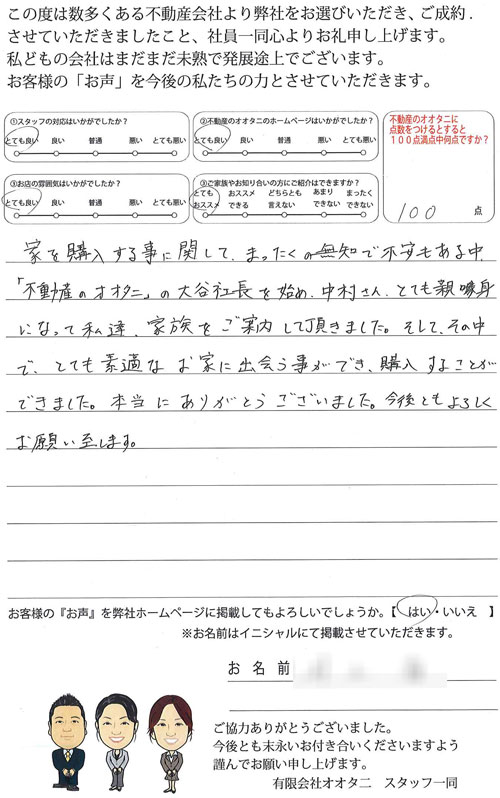 この度は数多くある不動産会社より弊社をお選びいただき、ご成約.
させていただきましたこと、社員一同心よりお礼申し上げます。
私どもの会社はまだまだ未熟で発展途上でございます。
お客様の「お声」を今後の私たちの力とさせていただきます。
①スタッフの対応はいかがでしたか?
とても良い 良い 普通 悪い とても悪い
②不動産のオオタニのホームページはいかがでしたか?
とても良い 良い 普通 悪い とても悪い
③お店の雰囲気はいかがでしたか?
とても良い 良い 普通 悪い とても悪い
③ご家族やお知り合いの方にご紹介はできますか?
とても おススメ どちらとも あまり まったく
おススメ できる 言えない できない できない
不動産のオオタニに
点数をつけるとすると
100点満点中何点ですか?
100 点
家を購入する事に関して、まったくの無知で不安もある中、
「不動産のオオタニ」の大谷社長を始め、中村さん、とても親身
になって私達、家族をご案内して頂きました。そして、その中
で、とても素適なお家に出会う事ができ、購入することが
できました。本当にありがとうございました。今後ともよろしく
お願い至します。
お客様の『お声』を弊社ホームページに掲載してもよろしいでしょうか。【 はい・いいえ 】
※お名前はイニシャルにて掲載させていただきます。
お名前
ご協力ありがとうございました。
今後とも末永いお付き合いくださいますよう
謹んでお願い申し上げます。
有限会社オオタニ スタッフ一同